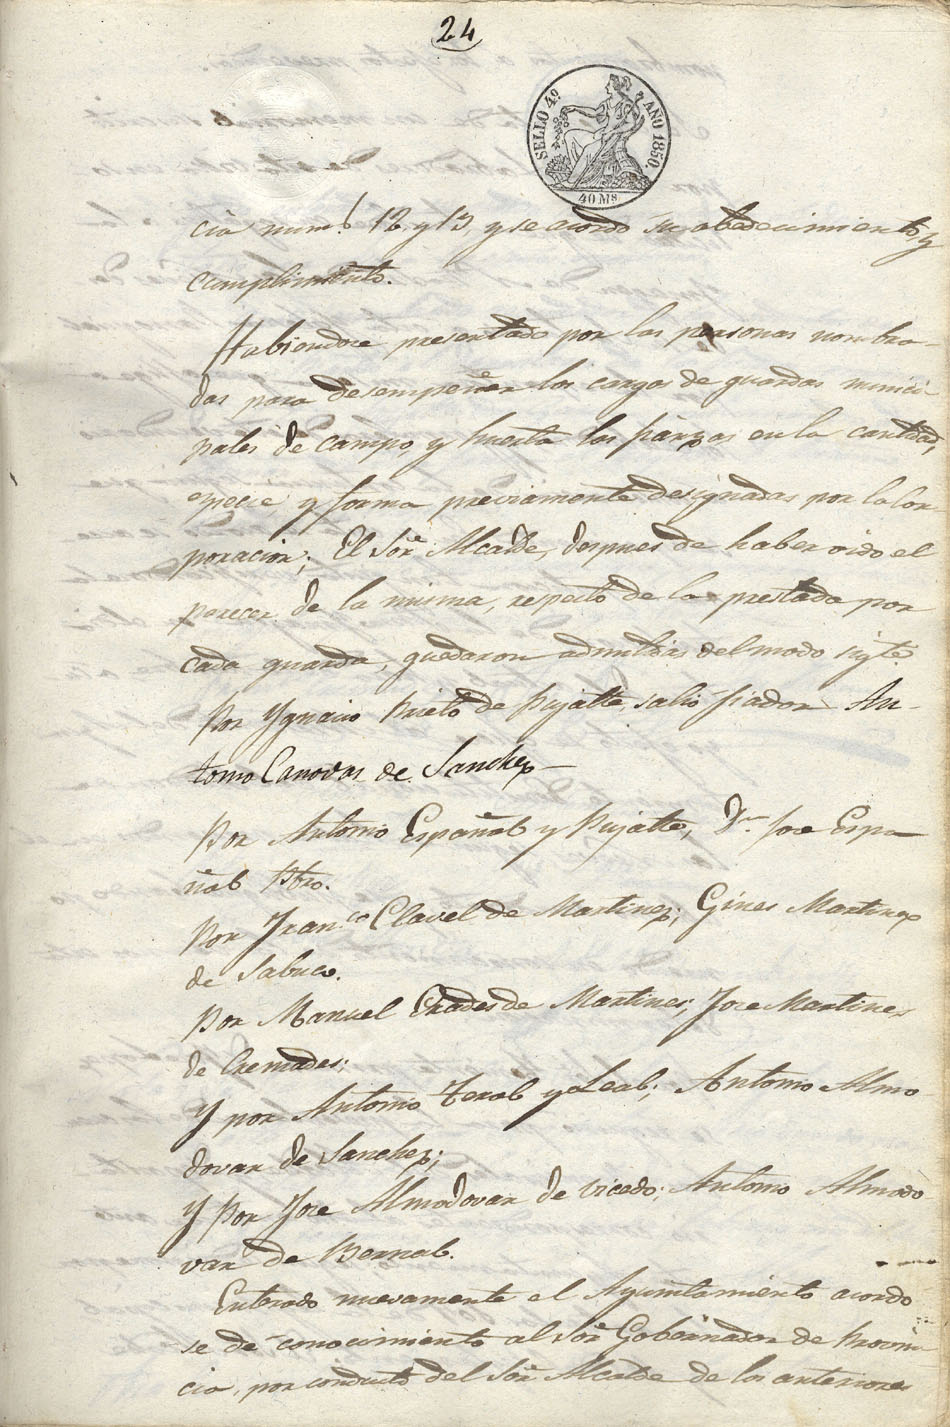 24
SELLO 4º AÑO 1850.
40 Ms
cia num.s 12 y 13 y se acordó su obedecimiento, y
cumplimiento.
Habiendose presentado por las personas nombra-
das para desempeñar los cargos de guardas munici-
pales de campo y huerta las fianzas en la cantidad,
especie y forma previamente designadas por la Cor-
poracion; El Sor Alcalde, despues de haber oido el
parecer de la misma, respecto de la prestada por
cada guarda, quedaron admitidas del modo sigte
Por Ygnacio Prieto de Pujalte, salio fiador An-
tonio Canovas de Sanchez —
Por Antonio Español y Pujalte, Dn Jose Espa-
ñol Pbro.
Por Franco Clavel de Martinez; Gines Martinez
de Sabuco.
Por Manuel Erades de Martines; Jose Martines
de Cremades;
Y por Antonio Terol y Leal; Antonio Almo-
dovar de Sanchez;
Y por Jose Almodovar de Vicedo; Antonio Almodo-
var de Bernal.
Enterado nuevamente el Ayuntamiento acordó
se dé conocimiento al Sor Gobernador de Provin-
cia, por conducto del Sor Alcalde de los anteriores